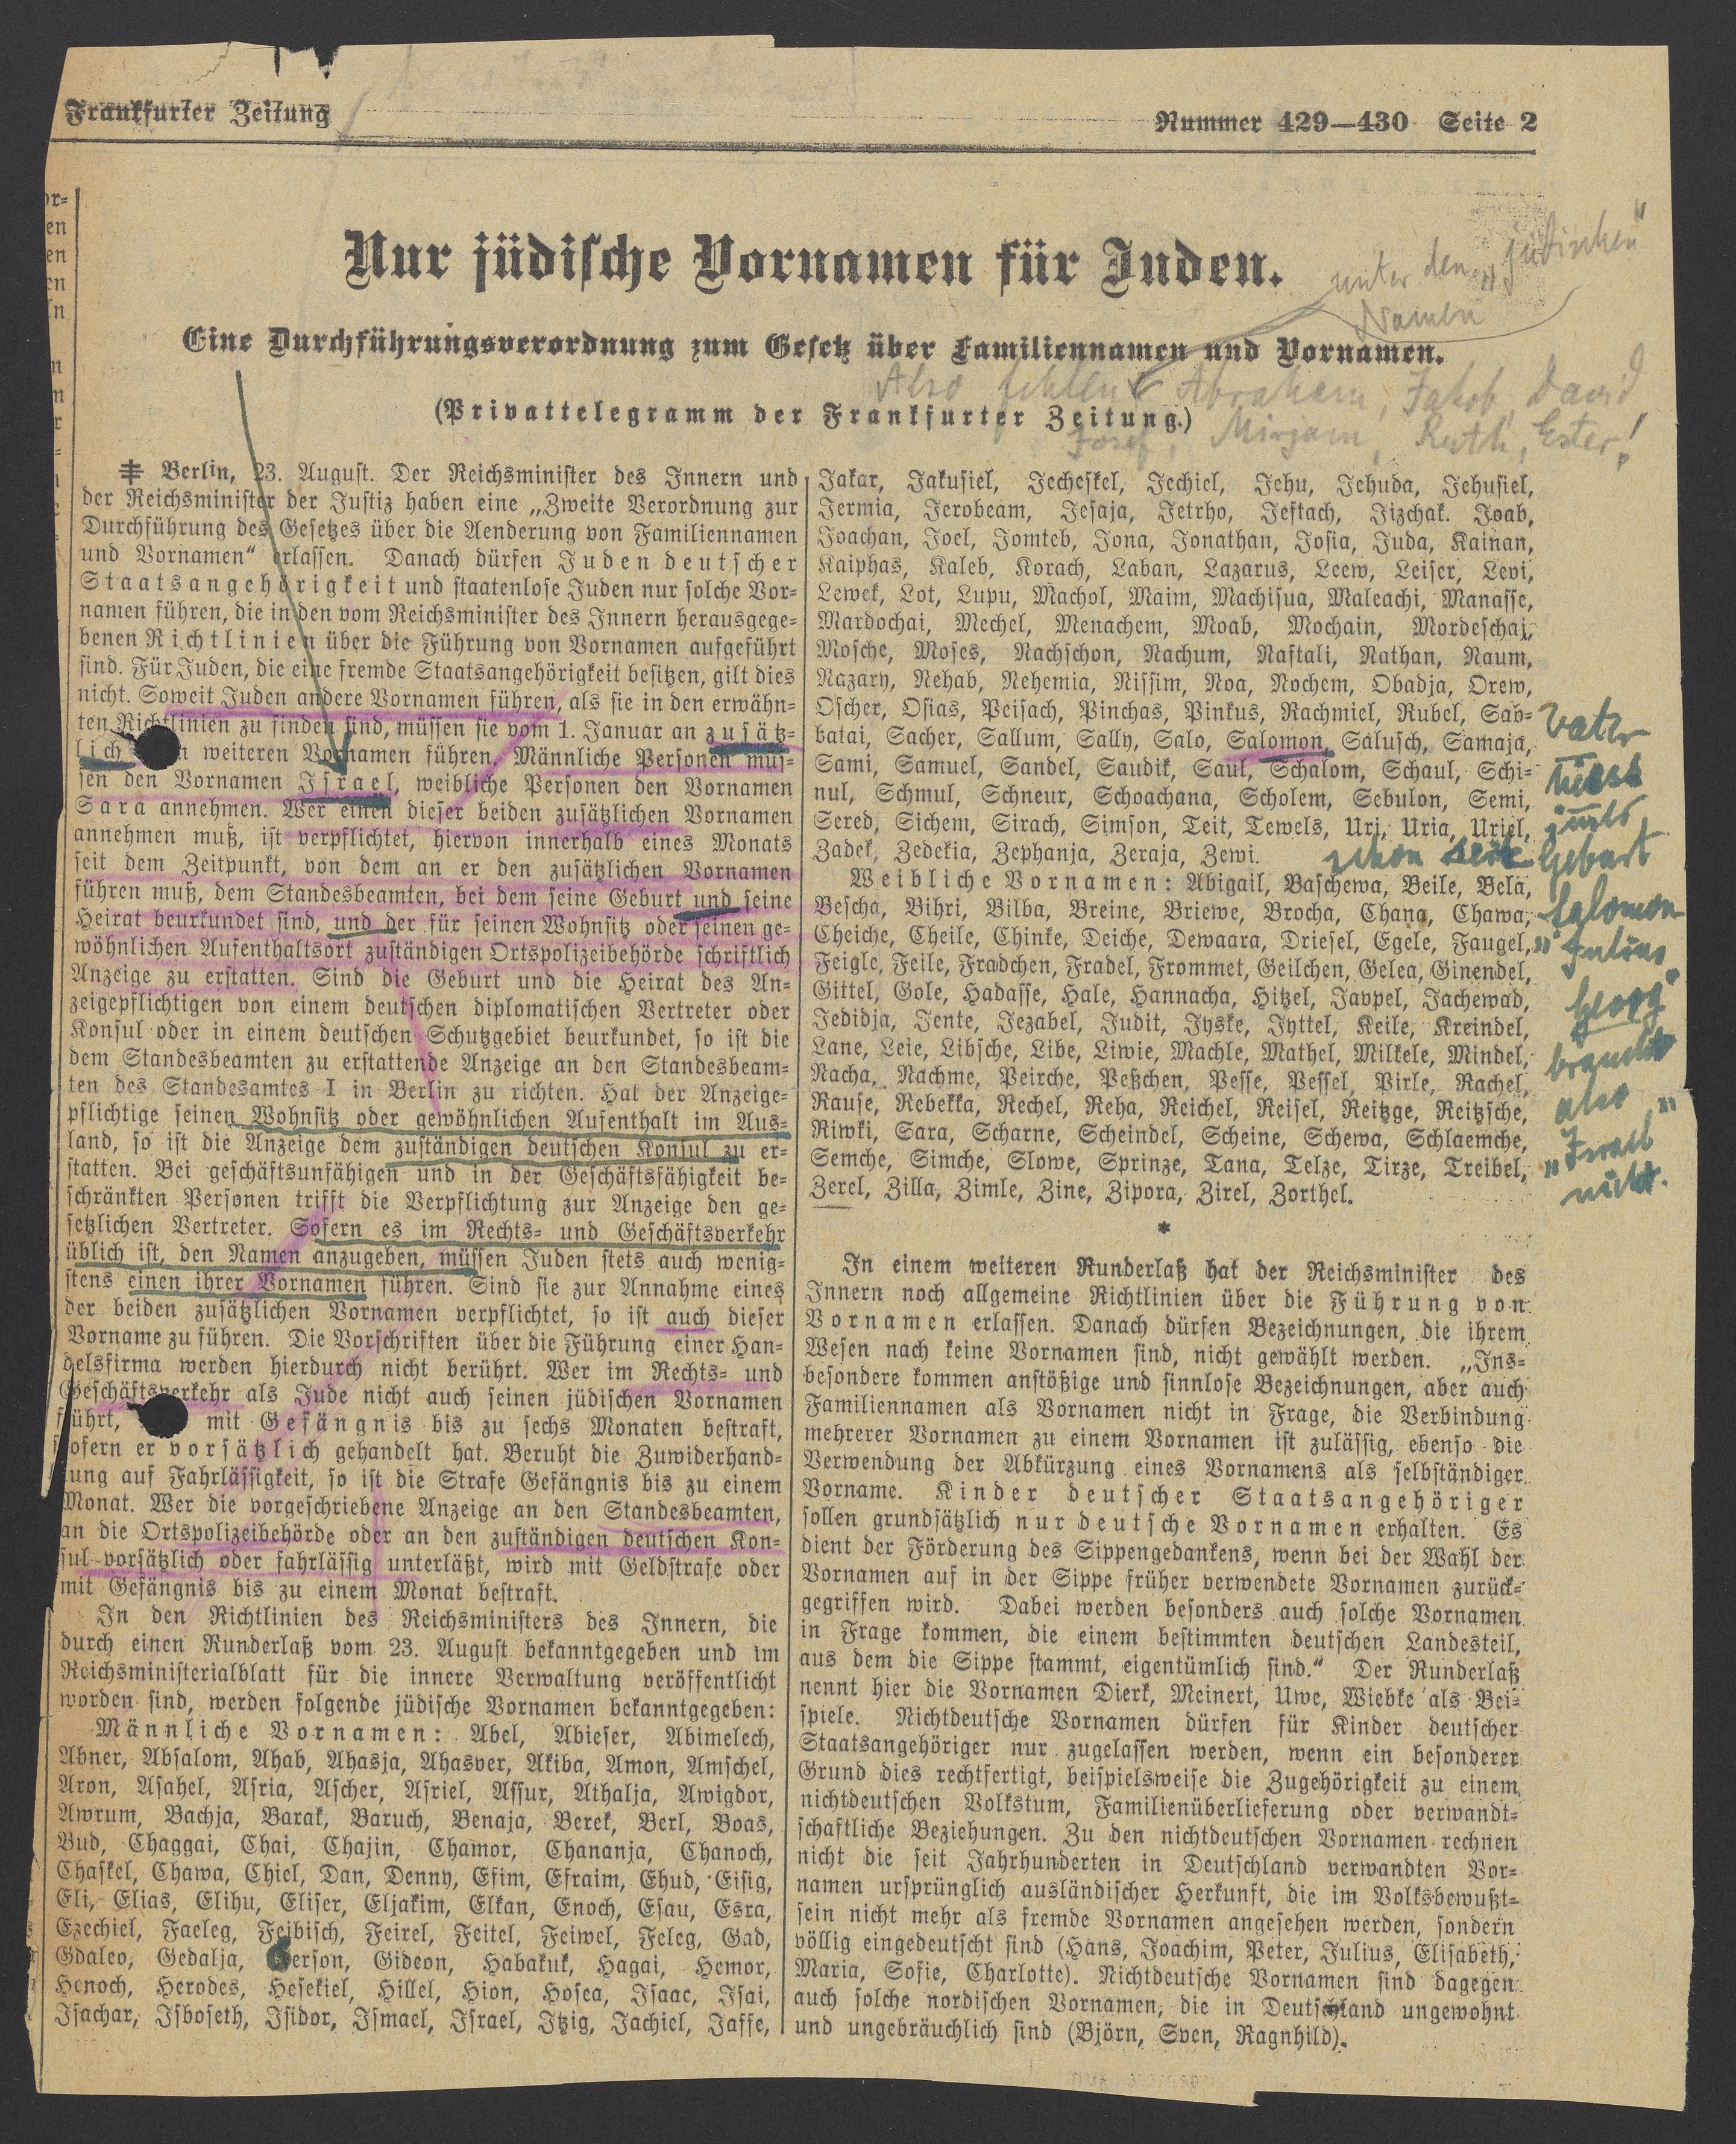 Frankfurter Zeitung
Nummer 429—430 Seite 2
Nur jüdische Vornamen für Juden.
Eine Durchführungsverordnung zum Gesetz über Familiennamen und Vornamen.
(Privattelegramm der Frankfurter Zeitung.)
unter den „jüdischen"
Namen
Also fehlen Abraham, Jakob, David
Josef, Mirjam, Ruth, Ester!
Berlin, 23. August. Der Reichsminister des Innern und
der Reichsminister der Justiz haben eine „Zweite Verordnung zur
Durchführung des Gesetzes über die Aenderung von Familiennamen
und Vornamen“ erlassen. Danach dürfen Juden deutscher
Staatsangehörigkeit und staatenlose Juden nur solche Vor-
namen führen, die in den vom Reichsminister des Innern herausgege-
benen Richtlinien über die Führung von Vornamen aufgeführt
sind. Für Juden, die eine fremde Staatsangehörigkeit besitzen, gilt dies
nicht. Soweit Juden andere Vornamen führen, als sie in den erwähn-
ten Richtlinien zu finden sind, müssen sie vom 1. Januar an zusätz-
lich n weiteren Vornamen führen. Männliche Personen müs-
sen den Vornamen Israel, weibliche Personen den Vornamen
Sara annehmen. Wer einen dieser beiden zusätzlichen Vornamen
annehmen muß, ist verpflichtet, hiervon innerhalb eines Monats
seit dem Zeitpunkt, von dem an er den zusätzlichen Vornamen
führen muß, dem Standesbeamten, bei dem seine Geburt und seine
Heirat beurkundet sind, und der für seinen Wohnsitz oder seinen ge-
wöhnlichen Aufenthaltsort zuständigen Ortspolizeibehörde schriftlich
Anzeige zu erstatten. Sind die Geburt und die Heirat des An-
zeigepflichtigen von einem deutschen diplomatischen Vertreter oder
Konsul oder in einem deutschen Schutzgebiet beurkundet, so ist die
dem Standesbeamten zu erstattende Anzeige an den Standesbeam-
ten des Standesamtes I in Berlin zu richten. Hat der Anzeige-
pflichtige seinen Wohnsitz oder gewöhnlichen Aufenthalt im Aus-
land, so ist die Anzeige dem zuständigen deutschen Konsul zu er-
statten. Bei geschäftsunfähigen und in der Geschäftsfähigkeit be-
schränkten Personen trifft die Verpflichtung zur Anzeige den ge-
setzlichen Vertreter. Sofern es im Rechts- und Geschäftsverkehr
üblich ist, den Namen anzugeben, müssen Juden stets auch wenig-
stens einen ihrer Vornamen führen. Sind sie zur Annahme eines
der beiden zusätzlichen Vornamen verpflichtet, so ist auch dieser
Vorname zu führen. Die Vorschriften über die Führung einer Han-
delsfirma werden hierdurch nicht berührt. Wer im Rechts- und
Geschäftsverkehr als Jude nicht auch seinen jüdischen Vornamen
führt, mit Gefängnis bis zu sechs Monaten bestraft,
sofern er vorsätzlich gehandelt hat. Beruht die Zuwiderhand-
lung auf Fahrlässigkeit, so ist die Strafe Gefängnis bis zu einem
Monat. Wer die vorgeschriebene Anzeige an den Standesbeamten,
an die Ortspolizeibehörde oder an den zuständigen deutschen Kon-
sul vorsätzlich oder fahrlässig unterläßt, wird mit Geldstrafe oder
mit Gefängnis bis zu einem Monat bestraft.
In den Richtlinien des Reichsministers des Innern, die
durch einen Runderlaß vom 23. August bekanntgegeben und im
Reichsministerialblatt für die innere Verwaltung veröffentlicht
worden sind, werden folgende jüdische Vornamen bekanntgegeben:
Männliche Vornamen: Abel, Abieser, Abimelech,
Abner, Absalom, Ahab, Ahasja, Ahasver, Akiba, Amon, Amschel,
Aron, Asahel, Asria, Ascher, Asriel, Assur, Athalja, Awigdor,
Awrum, Bachja, Barak, Baruch, Benaja, Berek, Berl, Boas,
Bud, Chaggai, Chai, Chajin, Chamor, Chananja, Chanoch,
Chaskel, Chawa, Chiel, Dan, Denny, Efim, Efraim, Ehud, Eisig,
Eli, Elias, Elihu, Eliser, Eljakim, Elkan, Enoch, Esau, Esra,
Ezechiel, Faeleg, Feibisch, Feirel, Feitel, Feiwel, Feleg, Gad,
Gdaleo, Gedalja, Gerson, Gideon, Habakuk, Hagai, Hemor,
Henoch, Herodes, Hesekiel, Hillel, Hion, Hosea, Isaac, Isai,
Isachar, Isboseth, Isidor, Ismael, Israel, Itzig, Jachiel, Jaffe,
Jakar, Jakusiel, Jecheskel, Jechiel, Jehu, Jehuda, Jehusiel,
Jermia, Jerobeam, Jesaja, Jetrho, Jeftach, Jizchak. Joab,
Joachan, Joel, Jomteb, Jona, Jonathan, Josia, Juda, Kainan,
Kaiphas, Kaleb, Korach, Laban, Lazarus, Leew, Leiser, Levi,
Lewek, Lot, Lupu, Machol, Maim, Machisua, Maleachi, Manasse,
Mardochai, Mechel, Menachem, Moab, Mochain, Mordeschaj,
Mosche, Moses, Nachschon, Nachum, Naftali, Nathan, Naum,
Nazary, Nehab, Nehemia, Nissim, Noa, Nochem, Obadja, Orew,
Oscher, Osias, Peisach, Pinchas, Pinkus, Rachmiel, Rubel, Sab-
batai, Sacher, Sallum, Sally, Salo, Salomon, Salusch, Samaja,
Sami, Samuel, Sandel, Saudik, Saul, Schalom, Schaul, Schi-
nul, Schmul, Schneur, Schoachana, Scholem, Sebulon, Semi,
Sered, Sichem, Sirach, Simson, Teit, Tewels, Uri, Uria, Uriel,
Zadek, Zedekia, Zephanja, Zeraja, Zewi.
Weibliche Vornamen: Abigail, Baschewa, Beile, Bela,
Bescha, Bihri, Bilba, Breine, Briewe, Brocha, Chana, Chawa,
Cheiche, Cheile, Chinke, Deiche, Dewaara, Driesel, Egele, Faugel,
Feigle, Feile, Fradchen, Fradel, Frommet, Geilchen, Gelea, Ginendel,
Gittel, Gole, Hadasse, Hale, Hannacha, Hitzel, Jappel, Jachewad,
Jedidja, Jente, Jezabel, Judit, Jyske, Jyttel, Keile, Kreindel,
Lane, Leie, Libsche, Libe, Liwie, Machle, Mathel, Milkele, Mindel,
Nacha, Nachme, Peirche, Peßchen, Pesse, Pessel, Pirle, Rachel,
Rause, Rebekka, Rechel, Reha, Reichel, Reisel, Reitzge, Reitzsche,
Riwki, Sara, Scharne, Scheindel, Scheine, Schewa, Schlaemche,
Semche, Simche, Slowe, Sprinze, Tana, Telze, Tirze, Treibel,
Zerel, Zilla, Zimle, Zine, Zipora, Zirel, Zorthel.
*
In einem weiteren Runderlaß hat der Reichsminister des
Innern noch allgemeine Richtlinien über die Führung von
Vornamen erlassen. Danach dürfen Bezeichnungen, die ihrem
Wesen nach keine Vornamen sind, nicht gewählt werden. „Ins-
besondere kommen anstößige und sinnlose Bezeichnungen, aber auch
Familiennamen als Vornamen nicht in Frage, die Verbindung
mehrerer Vornamen zu einem Vornamen ist zulässig, ebenso die
Verwendung der Abkürzung eines Vornamens als selbständiger
Vorname. Kinder deutscher Staatsangehöriger
sollen grundsätzlich nur deutsche Vornamen erhalten. Es
dient der Förderung des Sippengedankens, wenn bei der Wahl der
Vornamen auf in der Sippe früher verwendete Vornamen zurück-
gegriffen wird. Dabei werden besonders auch solche Vornamen
in Frage kommen, die einem bestimmten deutschen Landesteil,
aus dem die Sippe stammt, eigentümlich sind.“ Der Runderlaß
nennt hier die Vornamen Dierk, Meinert, Uwe, Wiebke als Bei-
spiele. Nichtdeutsche Vornamen dürfen für Kinder deutscher
Staatsangehöriger nur zugelassen werden, wenn ein besonderer
Grund dies rechtfertigt, beispielsweise die Zugehörigkeit zu einem
nichtdeutschen Volkstum, Familienüberlieferung oder verwandt-
schaftliche Beziehungen. Zu den nichtdeutschen Vornamen rechnen
nicht die seit Jahrhunderten in Deutschland verwandten Vor-
namen ursprünglich ausländischer Herkunft, die im Volksbewußt-
sein nicht mehr als fremde Vornamen angesehen werden, sondern
völlig eingedeutscht sind (Hans, Joachim, Peter, Julius, Elisabeth,
Maria, Sofie, Charlotte). Nichtdeutsche Vornamen sind dagegen
auch solche nordischen Vornamen, die in Deutschland ungewohnt
und ungebräuchlich sind (Björn, Sven, Ragnhild).
Vater
hiess
schon seit Geburt
Salomon
„Julius
Georg"
brauchte
also
„Israel"
nicht.